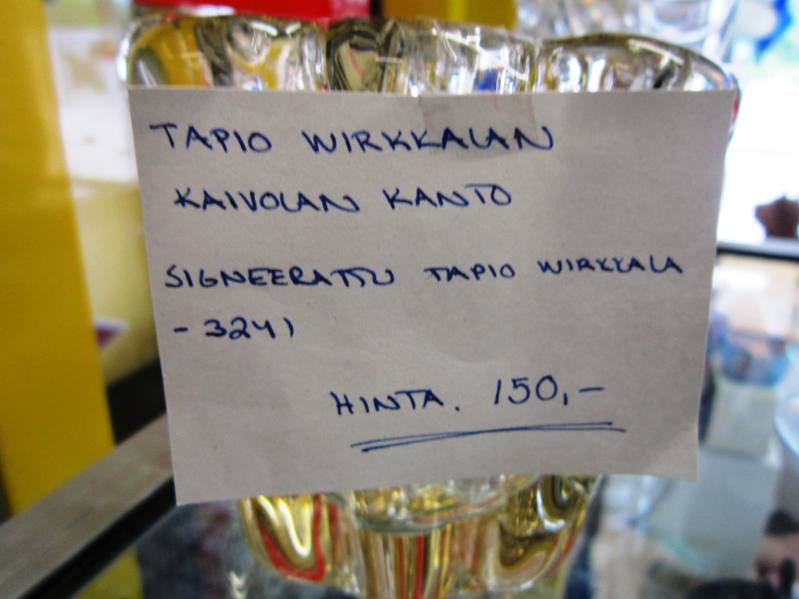 TAPIO WIRKKALAN
KAIVOLAN KANTO
SIGNEERATTU TAPIO WIRKKALA
- 3241
HINTA. 150,-